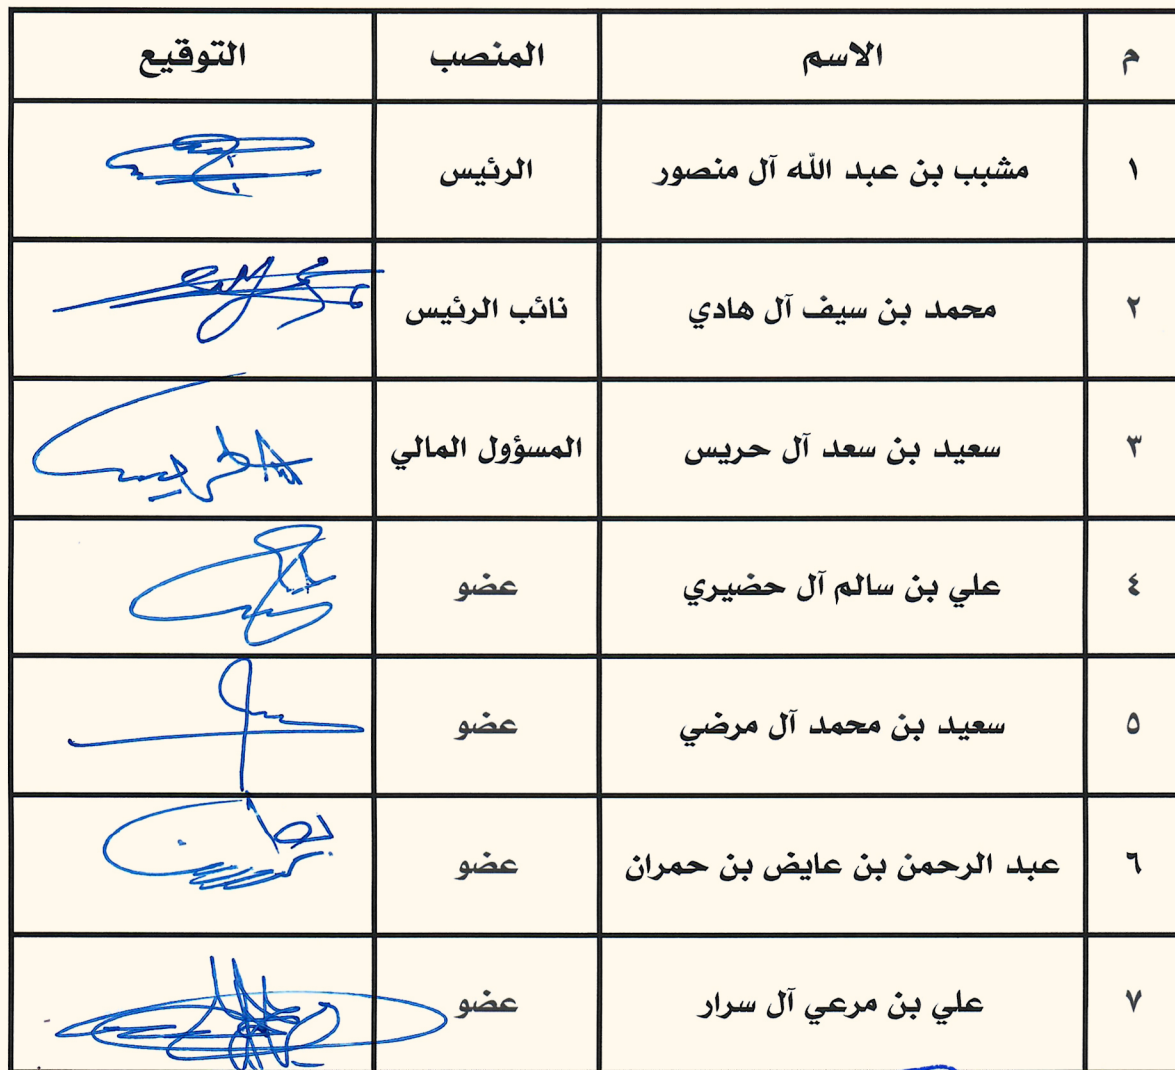 م الاسم المنصب التوقيع
١ مشبب بن عبد الله آل منصور الرئيس
٢ محمد بن سيف آل هادي نائب الرئيس
٣ سعيد بن سعد آل حريس المسؤول المالي
٤ علي بن سالم آل حضيري عضو
٥ سعيد بن محمد آل مرضي عضو
٦ عبد الرحمن بن عايض بن حمران عضو
٧ علي بن مرعي آل سرار عضو